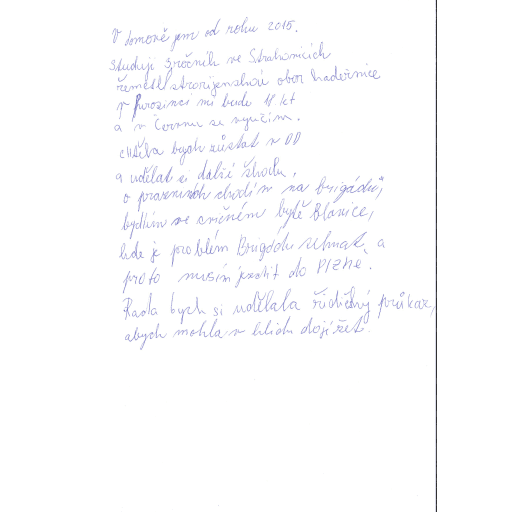 V domově jsem od roku 2015.
Studuji 3 ročník ve Strakonicích
řemesl strojírenskou obor kadeřnice
V prosinci mi bude 18 let
a v Červnu se vyučím.
chtěla bych zůstat v DD
a udělat si další školu,
o prázninách chodím na brigádu,
bydlím ve cvičném bytě Blanice,
kde je problém Brigádu sehnat, a
proto musím jezdit do Plzně.
Ráda bych si udělala řidičný průkaz,
abych mohla v klidu dojíždět.